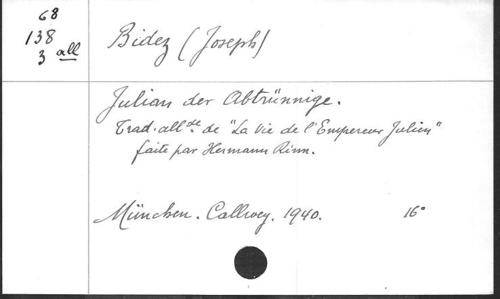 68
138
3 all
Bidez (Joseph)
Julian der Abtrünnige.
Trad. allde de "La Vie de l'Empereur Julien"
faite par Hermann Rinn.
München. Callwey. 1940. 16°